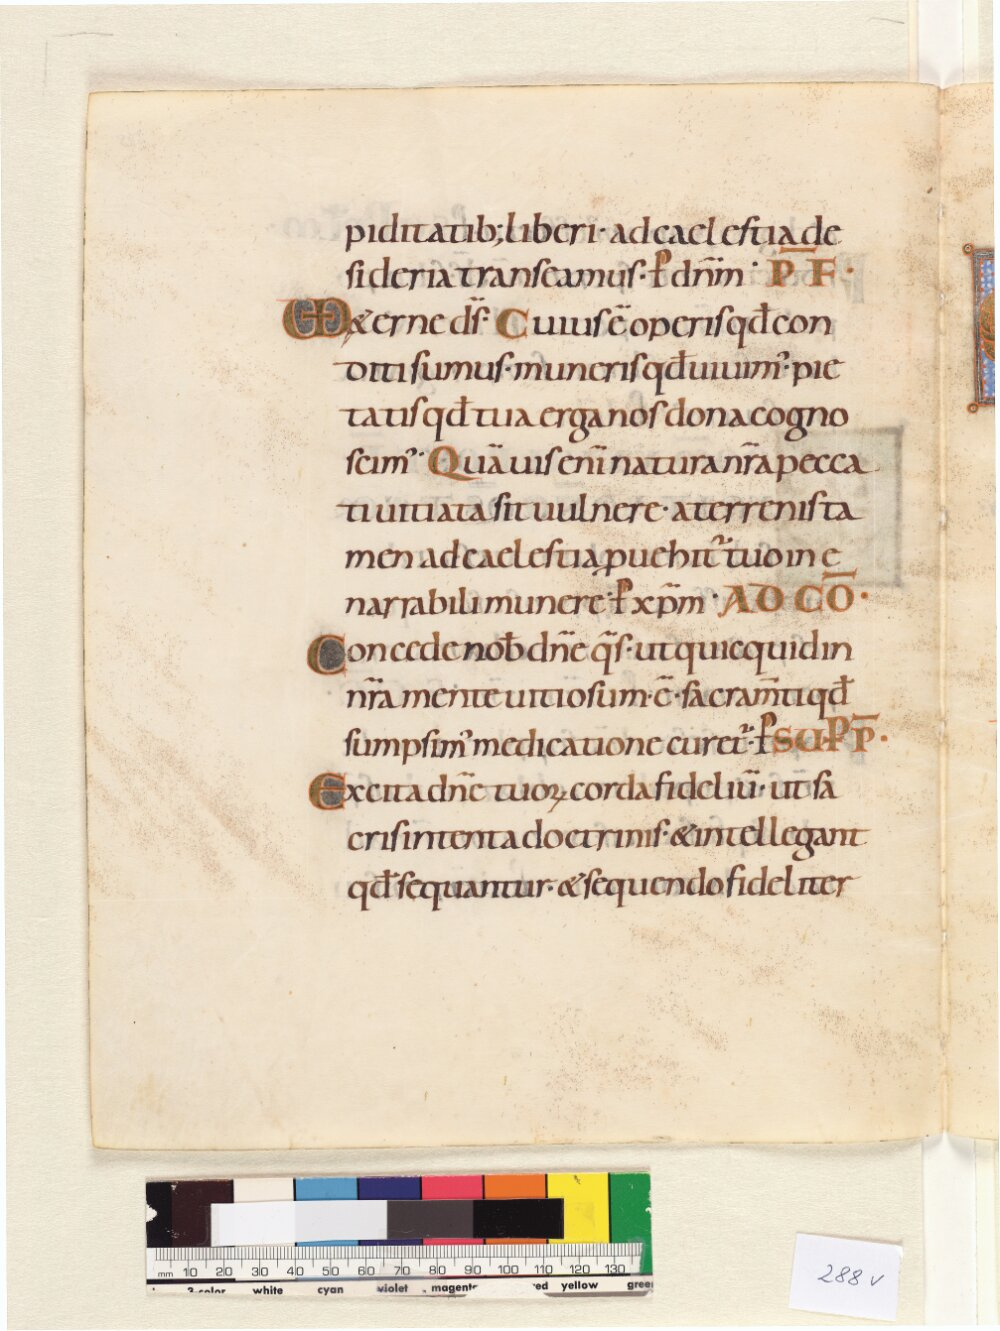 piditatib; liberi· ad caelestia de
sideria transeamus· ꝑ dnm̅· P̅ F·
VD &erne ds̅· Cuius ē operis qđ con
diti sumus· muneris qđ uiuimꝰ· pie
tatis qđ tua erga nos dona cogno
scimꝰ· Quāuis enī natura nr̅a pecca
ti uitiata sit uulnere· a terrenis ta
men ad caelestia ꝓuehit᷑ tuo ine
narrabili munere· ꝑ xpm̅· AD CŌ·
Concede nob̄ dn̅e q̅s· ut quicquid in
nr̅a mente uitiosum· ē· sacram̅ti qđ
sumpsimꝰ medicatione curet᷑· ꝑ SUP P̅·
Excita dn̅e tuoꝝ corda fideliū· ut sa
cris intenta doctrinis· & intellegant
qđ sequantur· & sequendo fideliter
mm 10 20 30 40 50 60 70 80 90 100 110 120 130
3-color white cyan violet magenta red yellow green
288 v